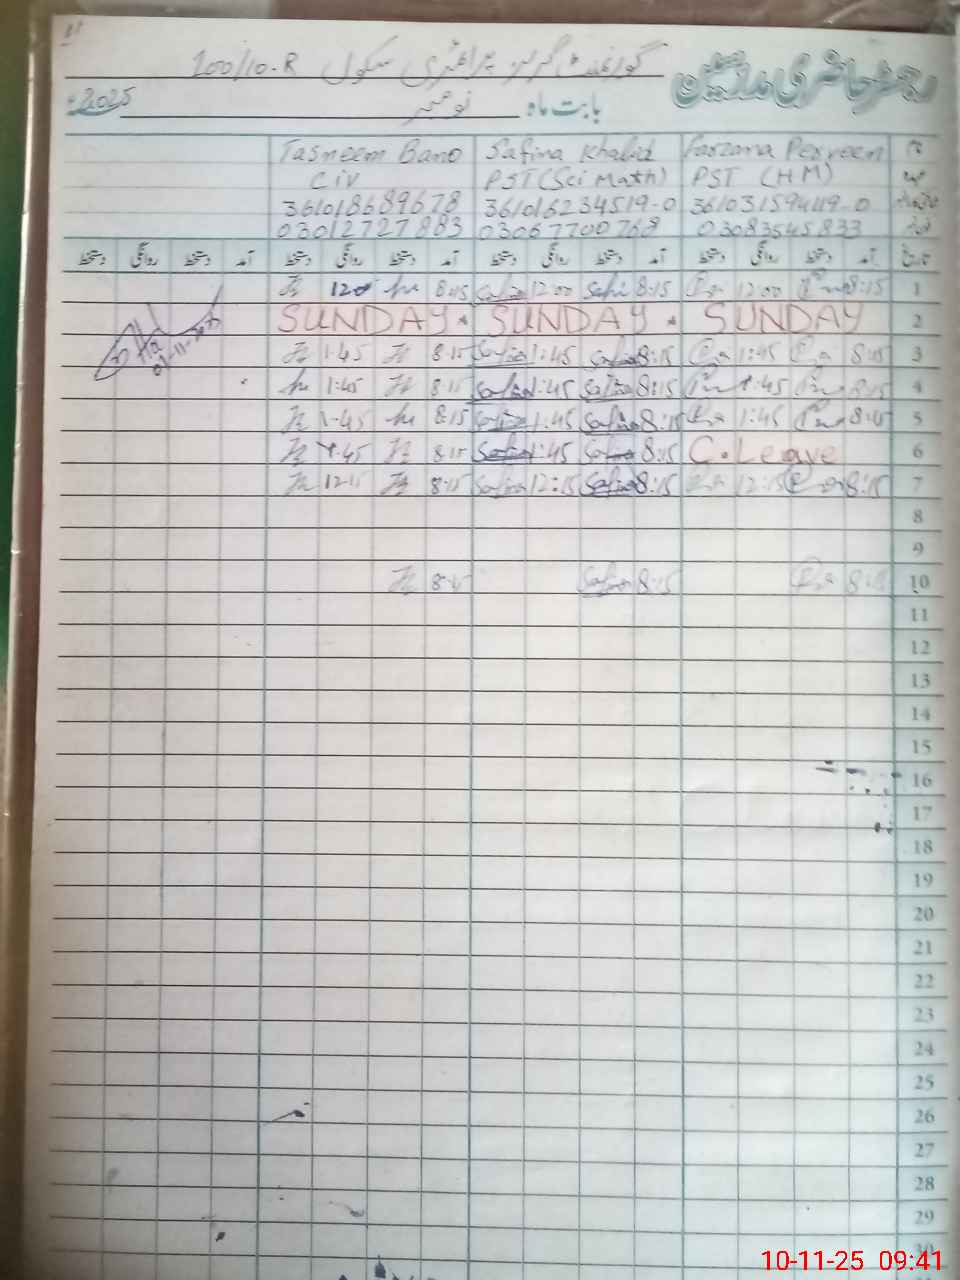 رجسٹر حاضری مدرسین
گورنمنٹ گرلز پرائمری سکول 100/10-R
بابت ماہ نومبر 2025ء
Tasneem Bano Safina Khalid Farzana Perveen نام
Civ PST (Sci Math) PST (HM) عہدہ
361018689678 361016234519-0
03012727883 03067700768 03083545833
دستخط روانگی دستخط آمد دستخط روانگی دستخط آمد دستخط روانگی دستخط آمد دستخط روانگی دستخط آمد تاریخ
8:15 Safina 12:00 Safi 8:15 12:00 8:15 1
SUNDAY SUNDAY SUNDAY 2
1-45 8-15 Safina 1:45 Safina 8:15 1:45 8:15 3
1:45 8:15 Safina 1:45 Safina 8:15 1:45 8:15 4
1-45 8:15 Safina 1:45 Safina 8:15 1:45 8:15 5
1-45 8-15 Safina 1:45 Safina 8:15 C.Leave 6
12-15 8-15 Safina 12:15 Safina 8:15 12:15 8:15 7
8
9
Safina 8:15 8:15 10
11
12
13
14
15
16
17
18
19
20
21
22
23
24
25
26
27
28
29
30
10-11-25 09:41